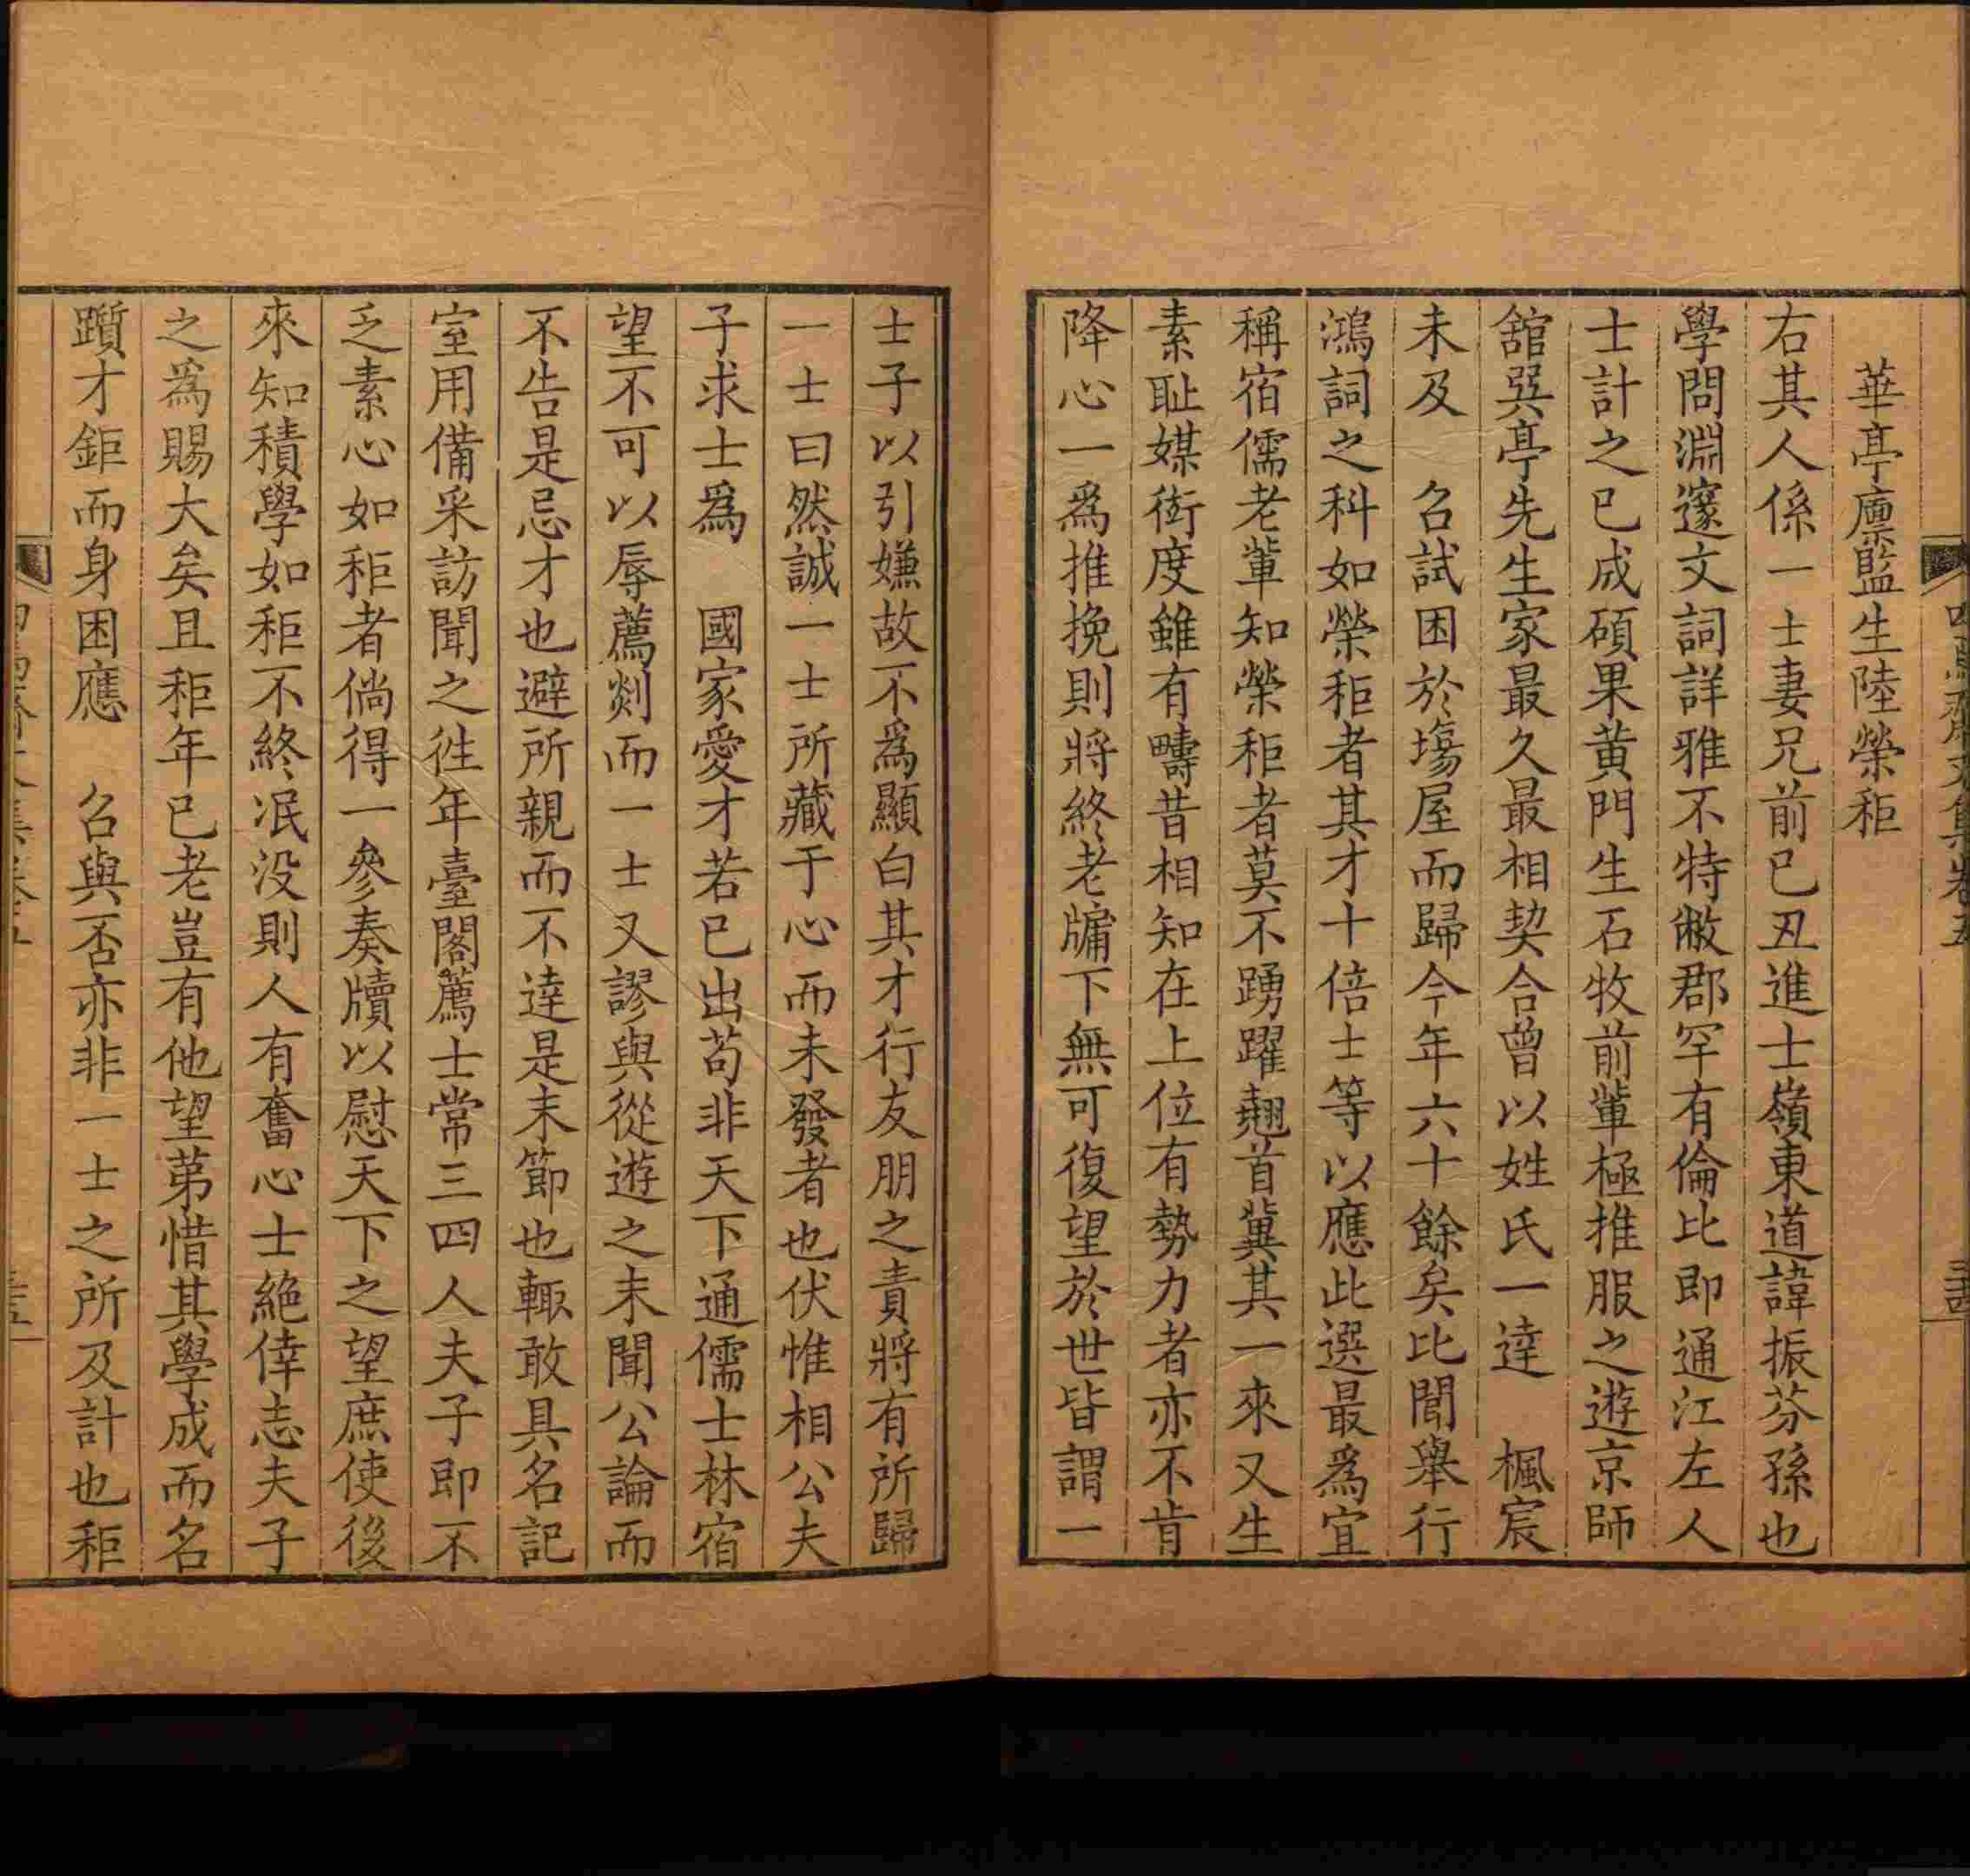 華亭廩監生陸榮秬
右其人係一士妻兄前已丑進士嶺東道諱振芬孫也
學問淵邃文詞詳雅不特敝郡罕有倫比即通江左人
士計之已成碩果黃門生石牧前輩極推服之遊京師
舘巽亭先生家最久最相契合曾以姓氏一達　楓宸
未及　召試困於塲屋而歸今年六十餘矣比聞舉行
鴻詞之科如榮秬者其才十倍士等以應此選最爲宜
稱宿儒老輩知榮秬者莫不踴躍翹首冀其一來又生
素耻媒衒度雖有疇昔相知在上位有勢力者亦不肯
降心一爲推挽則將終老牖下無可復望於世皆謂一
士子以引嫌故不爲顯白其才行友朋之責將有所歸
一士曰然誠一士所藏于心而未發者也伏惟相公夫
子求士爲　國家愛才若已出苟非天下通儒士林宿
望不可以辱薦剡而一士又謬與從遊之末聞公論而
不告是忌才也避所親而不達是末節也輒敢具名記
室用備采訪聞之徃年臺閣薦士常三四人夫子即不
乏素心如秬者倘得一參奏牘以慰天下之望庶使後
來知積學如秬不終泯没則人有奮心士絶倖志夫子
之爲賜大矣且秬年已老豈有他望苐惜其學成而名
躓才鉅而身困應　召與否亦非一士之所及計也秬